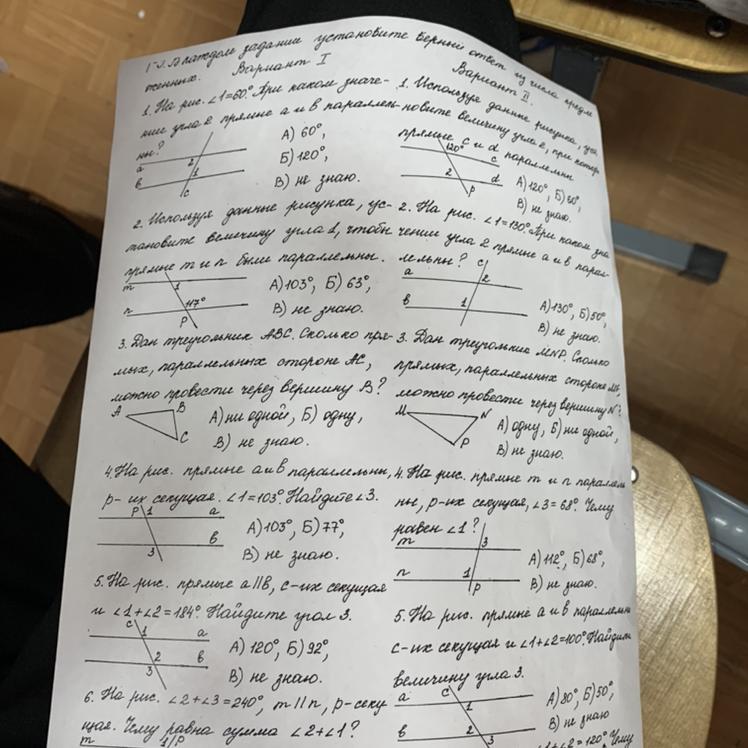 1-3. В каждом задании установите верный ответ из числа предл
женных. Вариант I
1. На рис. ∠1=60°. При каком значе-
нии угла 2 прямые а и в параллель-
ны?
а
в
2
1
с
А) 60°,
Б) 120°,
В) не знаю.
2. Используя данные рисунка, ус-
тановите величину угла 1, чтобы
прямые m и n были параллельны.
m
n
1
117°
P
А) 103°, Б) 63°,
В) не знаю.
3. Дан треугольник АВС. Сколько пря-
мых, параллельных стороне АС,
можно провести через вершину В?
А
В
С
А) ни одной, Б) одну,
В) не знаю.
4. На рис. прямые а и в параллельны,
р- их секущая. ∠1=103°. Найдите ∠3.
P
1
а
в
3
А) 103°, Б) 77°,
В) не знаю.
5. На рис. прямые а||в, с-их секущая
и ∠1+∠2=184°. Найдите угол 3.
с
1
а
2
в
3
А) 120°, Б) 92°,
В) не знаю.
6. На рис. ∠2+∠3=240°, m||n, р-секу
щая. Чему равна сумма ∠2+∠1?
m
1
P
Вариант II.
1. Используя данные рисунка, уст
новите величину угла 2, при котор
прямые с и d параллельны
120°
с
2
d
P
А) 120°, Б) 60°,
В) не знаю.
2. На рис. ∠1=130°. При каком зна
чении угла 2 прямые а и в парал-
лельны?
с
а
2
в
1
А) 130°, Б) 50°,
В) не знаю.
3. Дан треугольник MNP. Сколько
прямых, параллельных стороне
можно провести через вершину N?
M
N
P
А) одну, Б) ни одной,
В) не знаю.
4. На рис. прямые m и n параллель
ны, р-их секущая, ∠3=68°. Чему
равен ∠1?
m
3
n
1
P
А) 112°, Б) 68°,
В) не знаю.
5. На рис. прямые а и в параллельны
с-их секущая и ∠1+∠2=100°. Найдите
величину угла 3.
а
с
1
в
2
3
А) 80°, Б) 50°,
В) не знаю
∠1+∠2=120° Чему